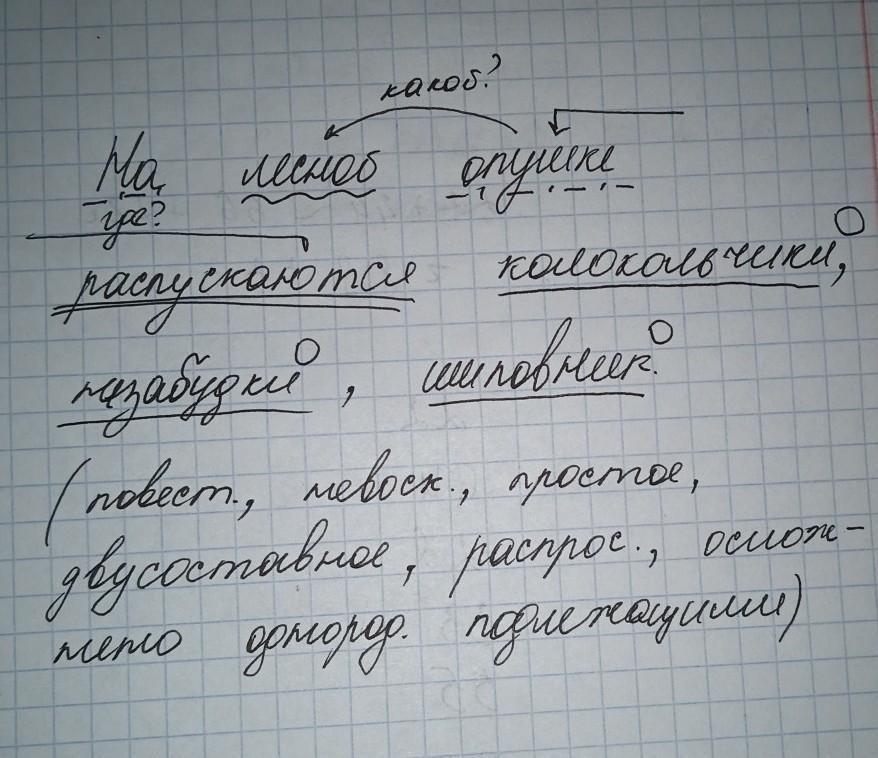 какой?
На лесной опушке
где?
распускаются колокольчики,
незабудки, шиповник.
(повест., невоск., простое,
двусоставное, распрос., ослож-
нено однород. подлежащими)